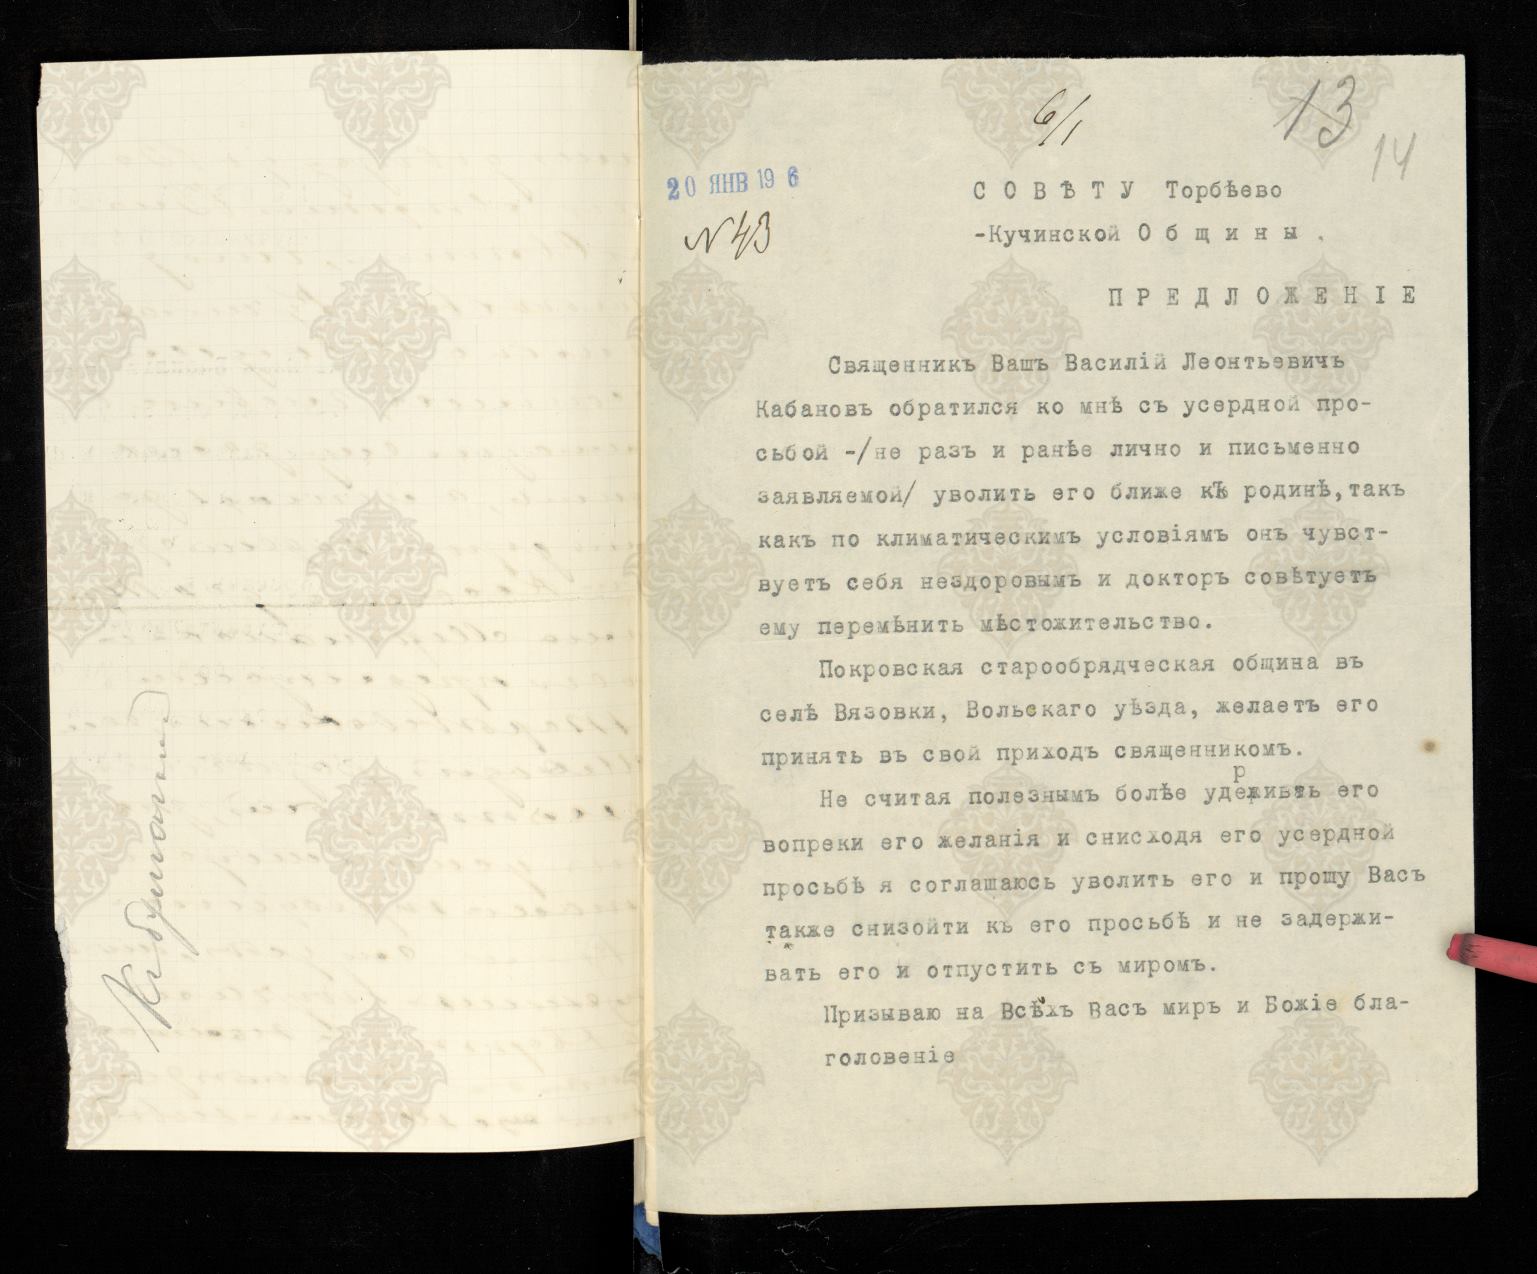 Къ бумагам
6/1
13
14
20 ЯНВ 19 6
N 43
СОВѢТУ Торбѣево
-Кучинской Общины.
ПРЕДЛОЖЕНІЕ
Священникъ Вашъ Василій Леонтьевичъ
Кабановъ обратился ко мнѣ съ усердной про-
сьбой -/не разъ и ранѣе лично и письменно
заявляемой/ уволить его ближе къ родинѣ,такъ
какъ по климатическимъ условіямъ онъ чувст-
вуетъ себя нездоровымъ и докторъ совѣтуетъ
ему перемѣнить мѣстожительство.
Покровская старообрядческая община въ
селѣ Вязовки, Вольскаго уѣзда, желаетъ его
принять въ свой приходъ священникомъ.
Не считая полезнымъ болѣе удерживть его
вопреки его желанія и снисходя его усердной
просьбѣ я соглашаюсь уволить его и прошу Васъ
также снизойти къ его просьбѣ и не задержи-
вать его и отпустить съ миромъ.
Призываю на Всѣхъ Васъ миръ и Божіе бла-
головеніе